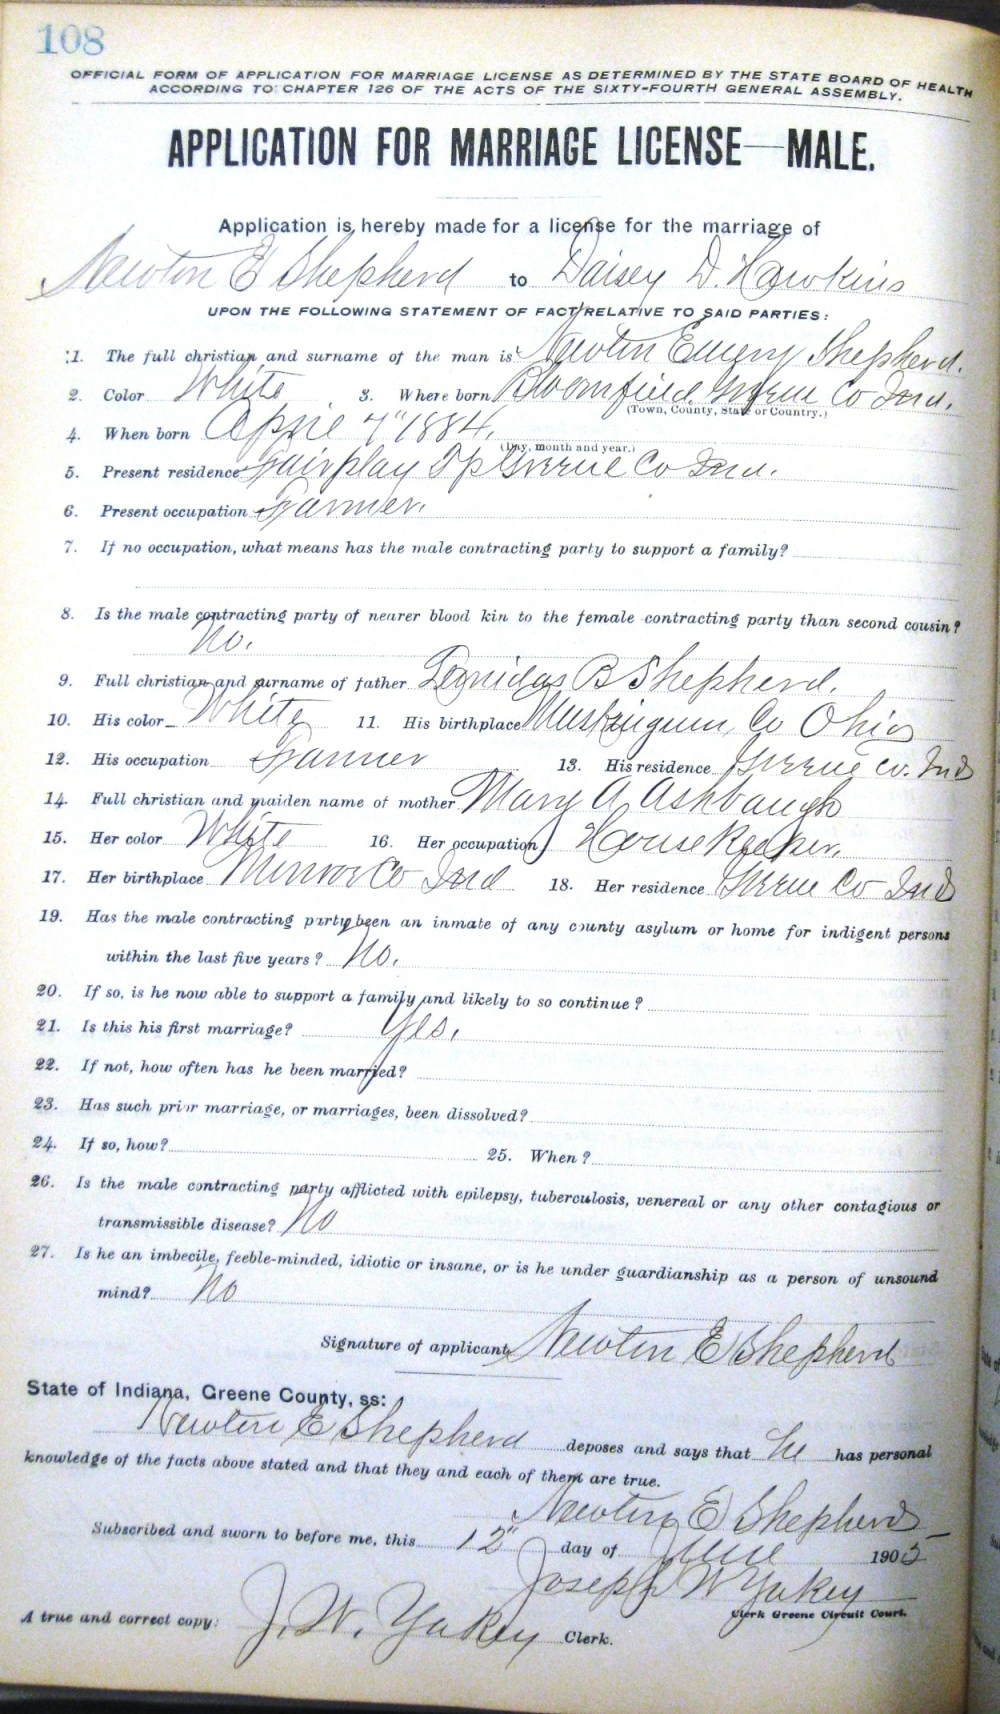 108
OFFICIAL FORM OF APPLICATION FOR MARRIAGE LICENSE AS DETERMINED BY THE STATE BOARD OF HEALTH
ACCORDING TO CHAPTER 126 OF THE ACTS OF THE SIXTY-FOURTH GENERAL ASSEMBLY.
APPLICATION FOR MARRIAGE LICENSE—MALE.
Application is hereby made for a license for the marriage of
Newton E Shepherd to Daisey D. Hawkins
UPON THE FOLLOWING STATEMENT OF FACT RELATIVE TO SAID PARTIES:
1. The full christian and surname of the man is Newton Emery Shepherd.
2. Color White 3. Where born Bloomfield Greene Co Ind.
(Town, County, State or Country.)
4. When born April 7" 1884.
(Day, month and year.)
5. Present residence Fairplay Tp Greene Co Ind.
6. Present occupation Farmer.
7. If no occupation, what means has the male contracting party to support a family?
8. Is the male contracting party of nearer blood kin to the female contracting party than second cousin?
No.
9. Full christian and surname of father B Shepherd.
10. His color White 11. His birthplace Muskingum Co Ohio
12. His occupation Farmer 13. His residence Greene Co. Ind
14. Full christian and maiden name of mother Mary A Ashbaugh
15. Her color White 16. Her occupation Housekeeper.
17. Her birthplace Monroe Co Ind 18. Her residence Greene Co Ind
19. Has the male contracting party been an inmate of any county asylum or home for indigent persons
within the last five years? No.
20. If so, is he now able to support a family and likely to so continue?
21. Is this his first marriage? Yes.
22. If not, how often has he been married?
23. Has such prior marriage, or marriages, been dissolved?
24. If so, how? 25. When?
26. Is the male contracting party afflicted with epilepsy, tuberculosis, venereal or any other contagious or
transmissible disease? No
27. Is he an imbecile, feeble-minded, idiotic or insane, or is he under guardianship as a person of unsound
mind? No
Signature of applicant Newton E Shepherd
State of Indiana, Greene County, ss:
Newton E Shepherd deposes and says that he has personal
knowledge of the facts above stated and that they and each of them are true.
Newton E Shepherd
Subscribed and sworn to before me, this 12" day of June 1905
Joseph W Yakey
Clerk Greene Circuit Court.
A true and correct copy: J. W. Yakey Clerk.